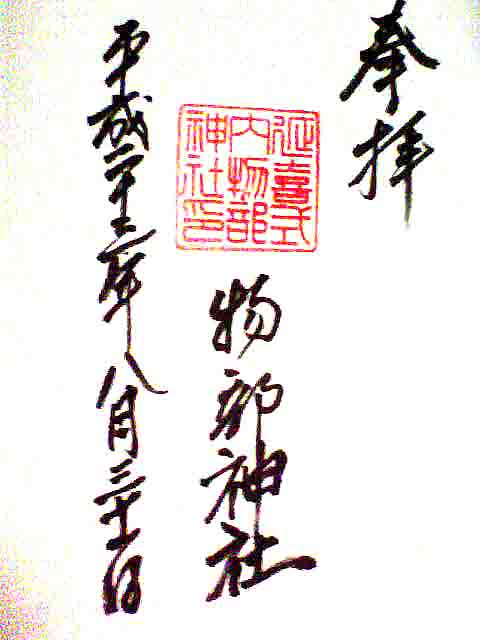 奉拝
延喜式
内物部
神社印
物部神社
平成二十三年八月三十一日